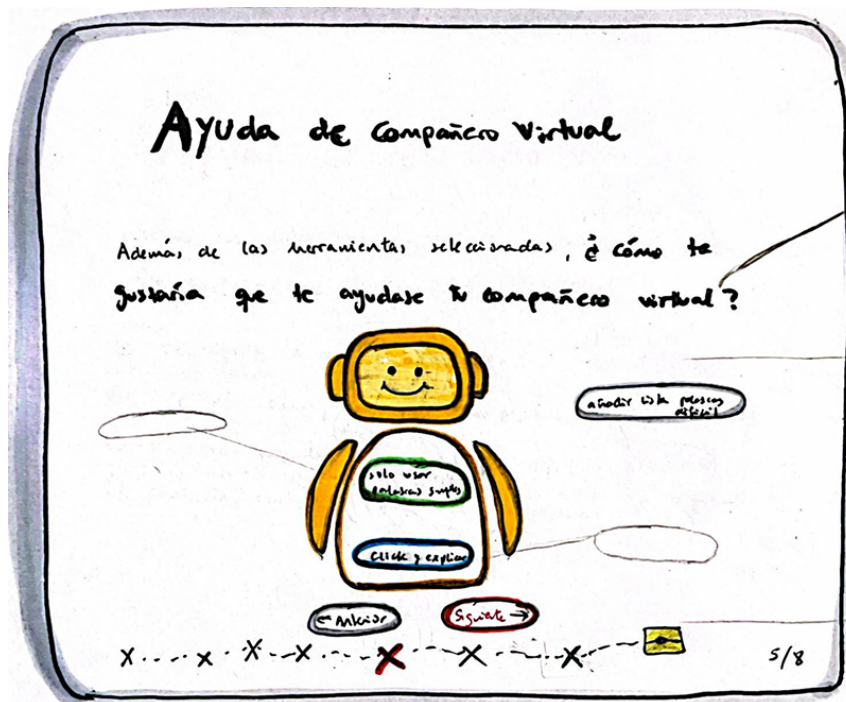 Ayuda de compañero virtual
Además de las herramientas seleccionadas, ¿cómo te
gustaría que te ayudase tu compañero virtual?
añadir lista palabras
difícil
solo usar
palabras simples
Click y explicar
← Anterior
Siguiente →
5/8